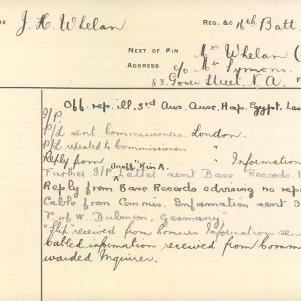 ME J. H. Whelan REG. &C 16th Batt.
NEXT OF KIN Mrs Whelan (
ADDRESS c/o Mrs Symons
83 Gover Street N.A.
Off. rep. ill, 3rd Aus. Aux. Hop. Egypt.
I/P.
P/L sent Commissioners London.
P/L repeated to Commissioners "
Reply from " Information
Further I/P Unoff Kin A. Letter sent Base Records.
Reply from Base Records advising no rep
Cable from Commis. Information sent
of W. Dulmen, Germany"
"Slip" received from Comms Information sen
Cabled information received from Comm
warded Inquirer.